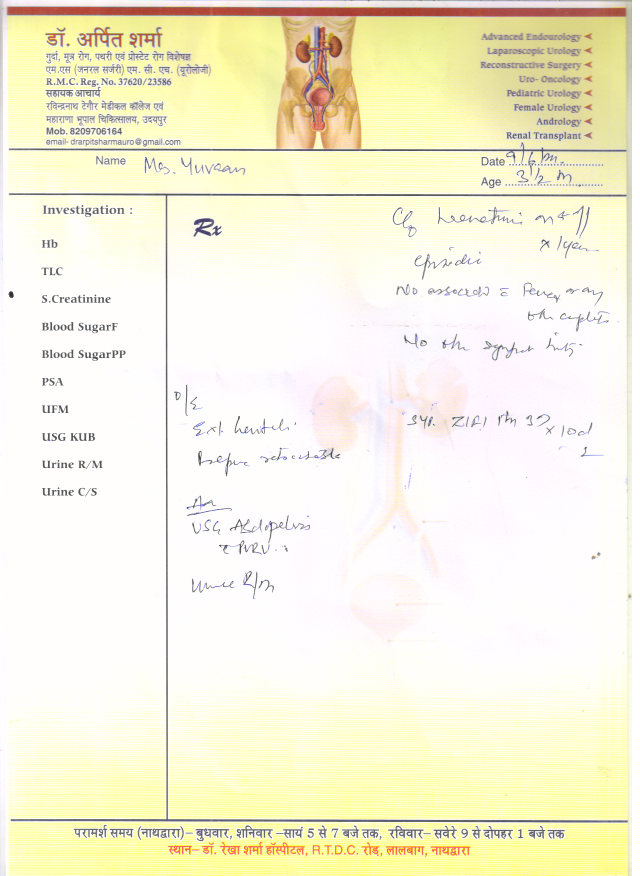 डॉ. अर्पित शर्मा
गुर्दा, मूत्र रोग, पथरी एवं प्रोस्टेट रोग विशेषज्ञ
एम.एस (जनरल सर्जरी) एम. सी. एच. (यूरोलोजी)
R.M.C. Reg. No. 37620/23586
सहायक आचार्य
रविन्द्रनाथ टेगौर मेडीकल कॉलेज एवं
महाराणा भूपाल चिकित्सालय, उदयपुर
Mob. 8209706164
email- drarpitsharmauro@gmail.com
Advanced Endourology
Laparoscopic Urology
Reconstructive Surgery
Uro- Oncology
Pediatric Urology
Female Urology
Andrology
Renal Transplant
Name Yuvaan
Date 9/6/
Age 3 1/2
Investigation :
Hb
TLC
S.Creatinine
Blood SugarF
Blood SugarPP
PSA
UFM
USG KUB
Urine R/M
Urine C/S
Rx
on & off
x 1 year
No
or any
No
O/E
Ext.
USG
Urine R/M
Syp. ZIFI
x 10d
परामर्श समय (नाथद्वारा)– बुधवार, शनिवार –सायं 5 से 7 बजे तक, रविवार– सवेरे 9 से दोपहर 1 बजे तक
स्थान– डॉ. रेखा शर्मा हॉस्पीटल, R.T.D.C. रोड़, लालबाग, नाथद्वारा